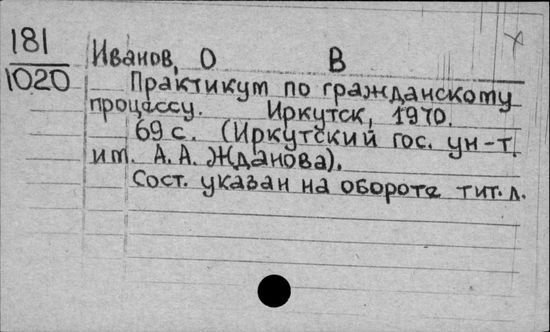 181
1020
Иванов, О В
Практикум по гражданскому
процессу. Иркутск, 1970.
69 с. (Иркутский гос. ун-т
им. А. А. Жданова).
Сост. указан на обороте тит. л.